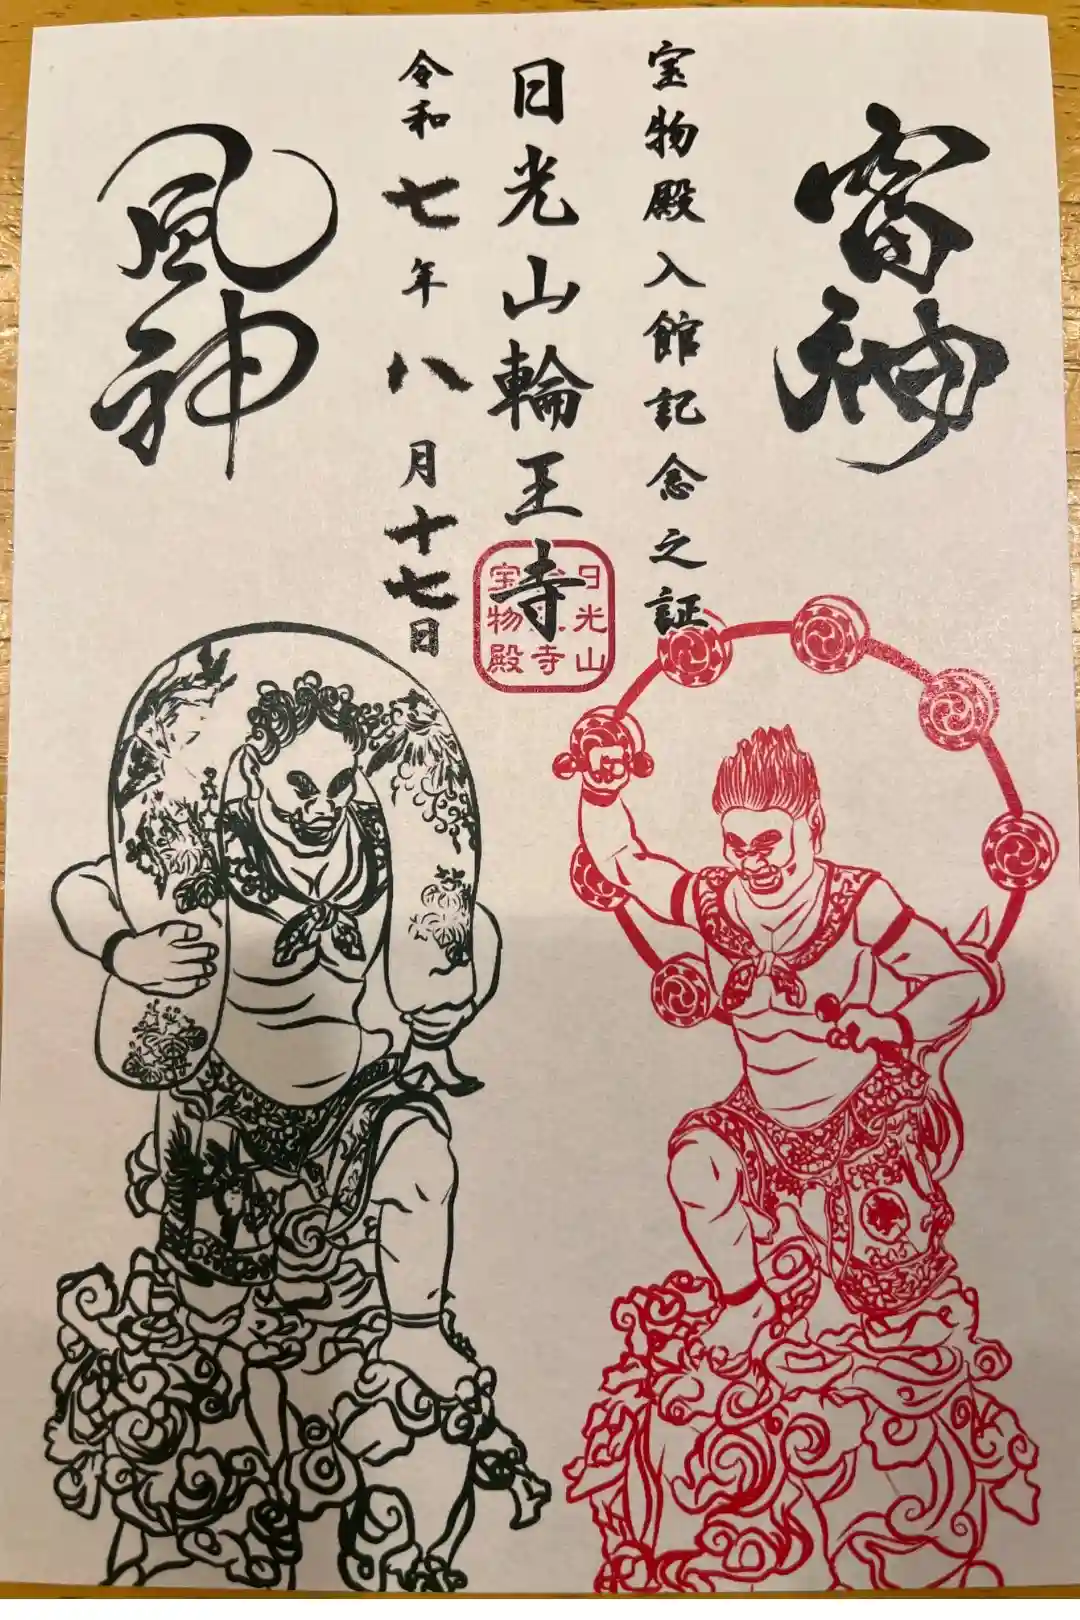 雷神
宝物殿入館記念之証
日光山輪王寺
日光山
寺
宝物殿
令和七年八月十七日
風神